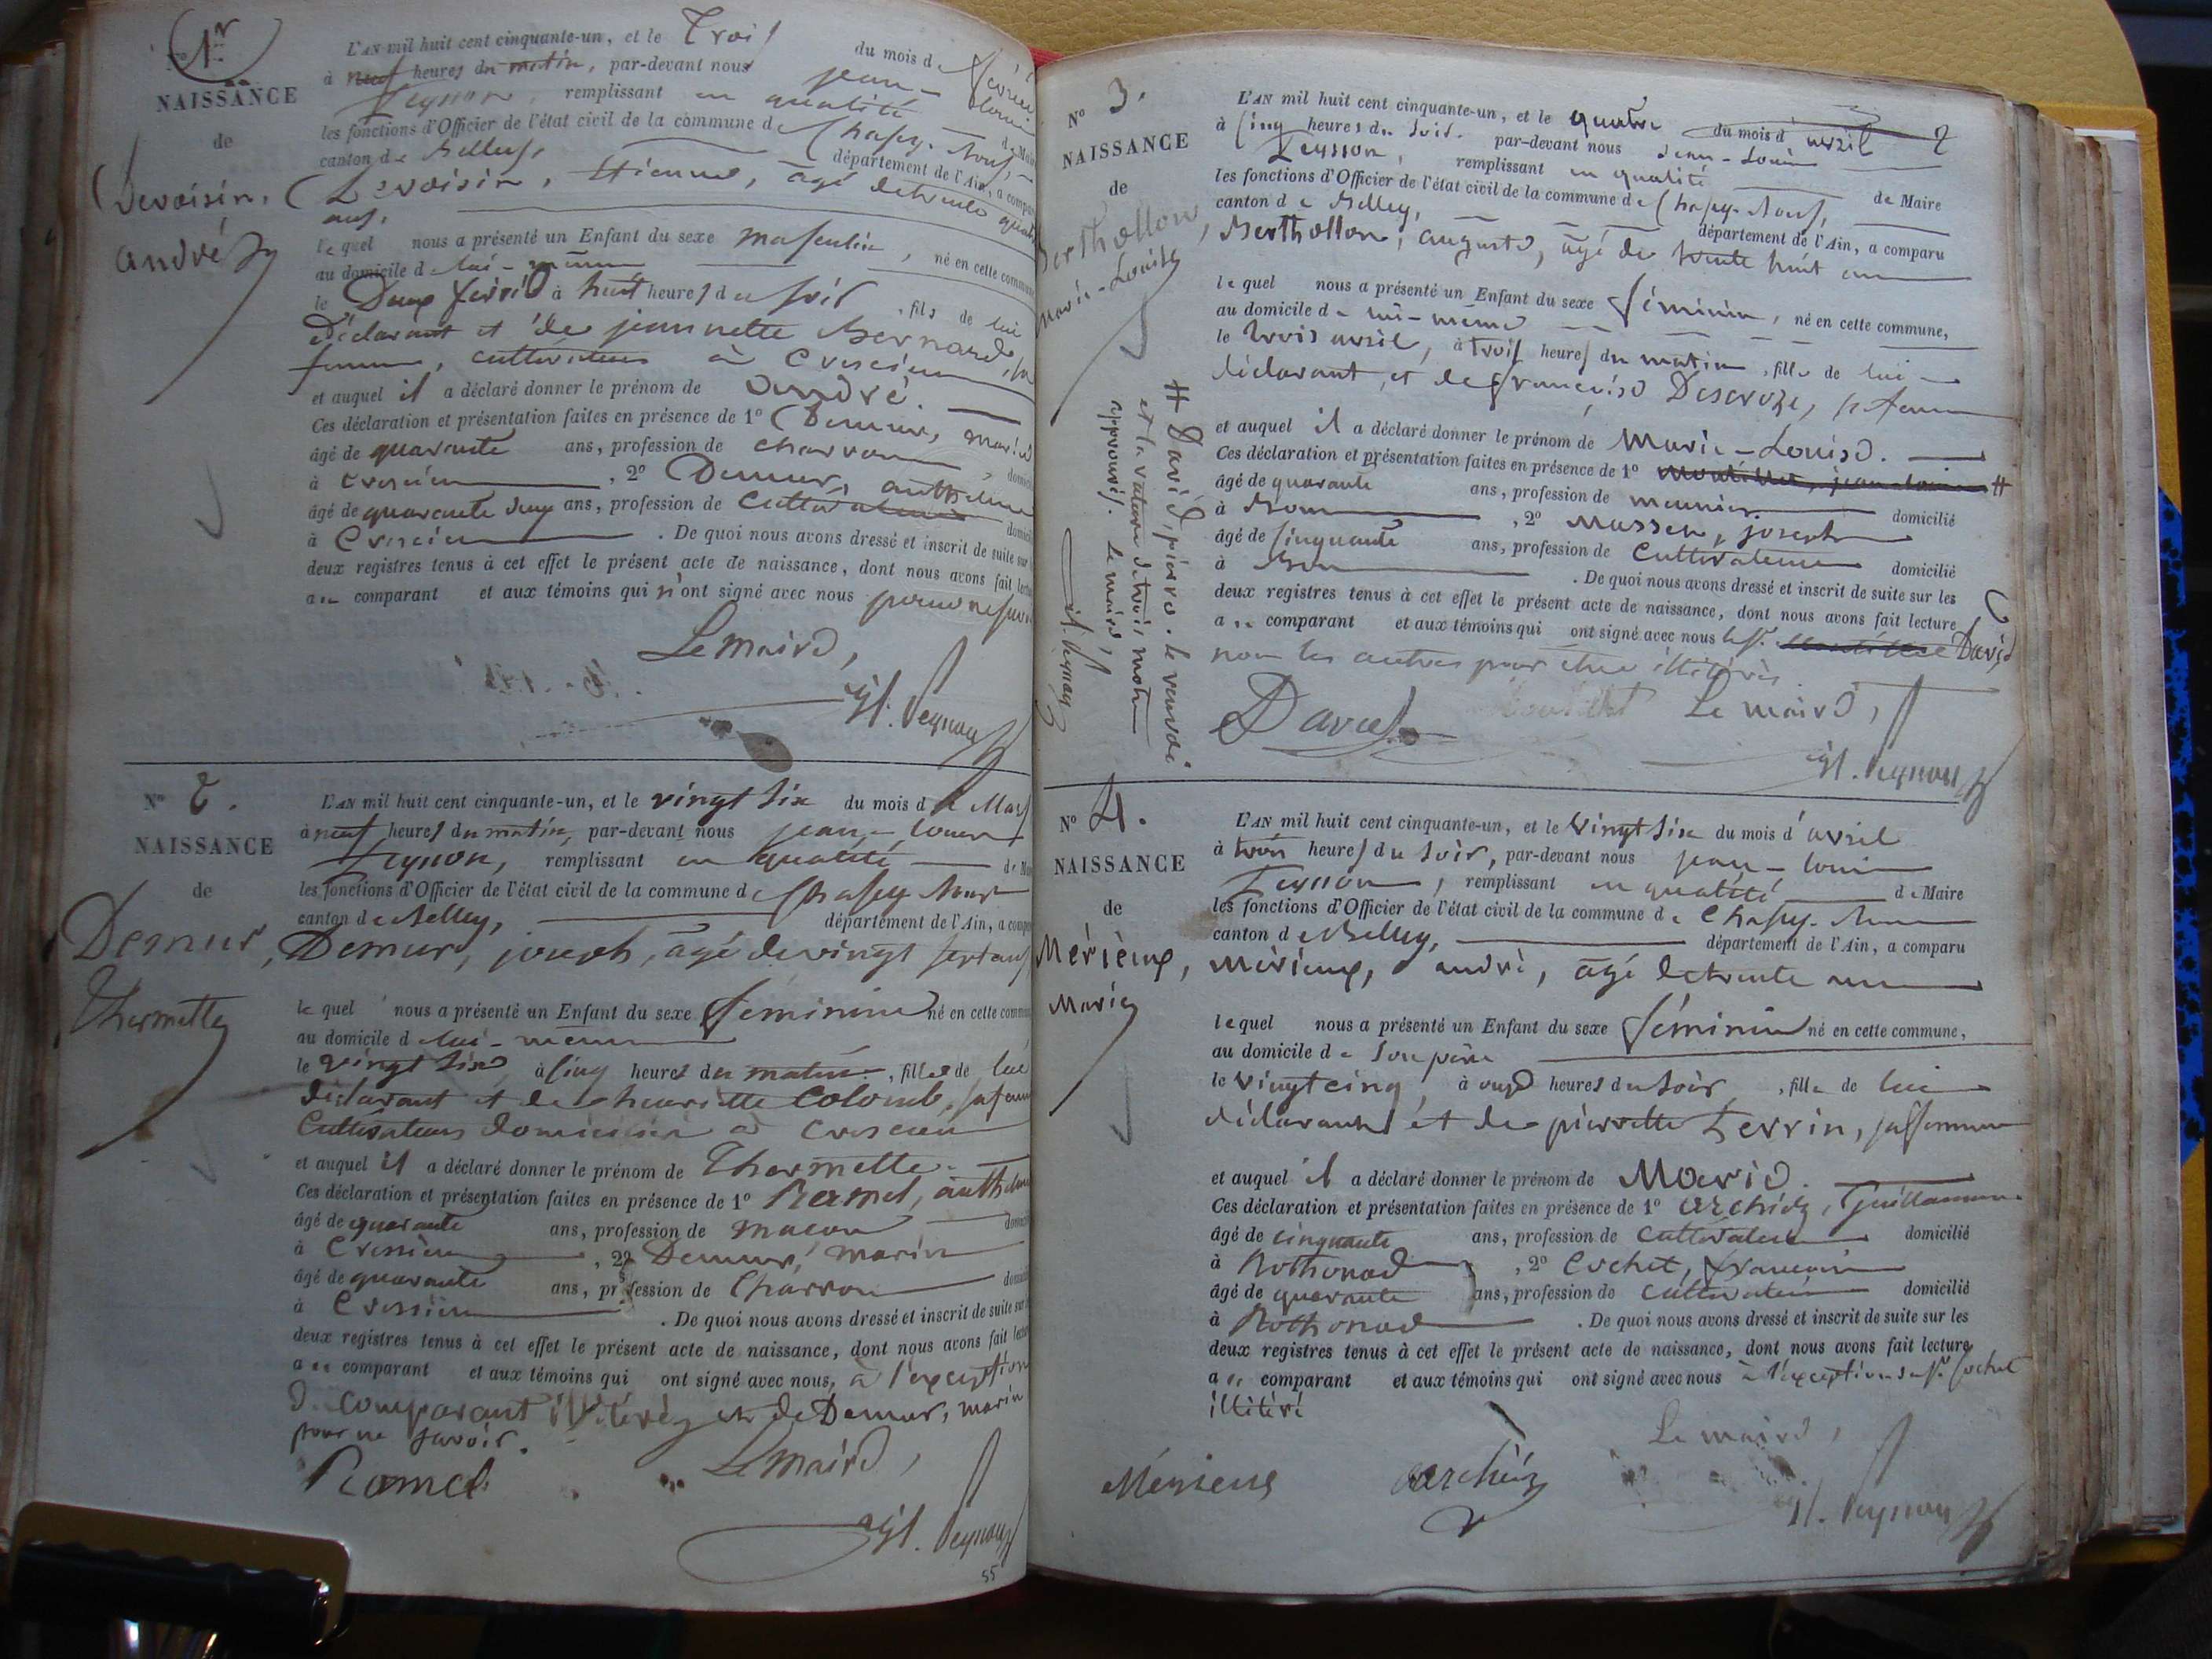 1er
NAISSANCE
de
Devoisin,
André
L'AN mil huit cent cinquante-un, et le Trois du mois de février
à neuf heures du matin, par-devant nous jean-louis
Peysson, remplissant en qualité de Maire
les fonctions d'Officier de l'état civil de la commune de Chazey-Bons,
canton de Belley, département de l'Ain, a comparu
Devoisin, Etienne, âgé de trente quatre
ans,
lequel nous a présenté un Enfant du sexe masculin, né en cette commune
au domicile de lui-même
le Deux février à huit heures du soir, fils de lui
Déclarant et de jeannette Bernard, sa
femme, cultivateurs à Cressieu
et auquel il a déclaré donner le prénom de André.
Ces déclaration et présentation faites en présence de 1º Demur, marin
âgé de quarante ans, profession de charron, domicilié
à Cressieu, 2º Demur, anthelme
âgé de quarante deux ans, profession de Cultivateur domicilié
à Cressieu. De quoi nous avons dressé et inscrit de suite sur
deux registres tenus à cet effet le présent acte de naissance, dont nous avons fait lecture
au comparant et aux témoins qui n'ont signé avec nous pour ne savoir
Le maire,
Nº 2.
NAISSANCE
de
Demur,
Thermette
L'AN mil huit cent cinquante-un, et le vingt six du mois de Mars
à neuf heures du matin, par-devant nous jean-louis
Peysson, remplissant en qualité de Maire
les fonctions d'Officier de l'état civil de la commune de Chazey-Bons
canton de Belley, département de l'Ain, a comparu
Demur, joseph, âgé de vingt sept ans
lequel nous a présenté un Enfant du sexe féminin né en cette commune
au domicile de lui-même
le vingt six à cinq heures du matin, fille de lui
déclarant et de henriette Colomb, sa femme
Cultivateurs domiciliés à Cressieu
et auquel il a déclaré donner le prénom de Thermette.
Ces déclaration et présentation faites en présence de 1º Ramel, anthelme
âgé de quarante ans, profession de maçon domicilié
à Cressieu, 2º Demur, marin
âgé de quarante ans, profession de Charron domicilié
à Cressieu. De quoi nous avons dressé et inscrit de suite sur
deux registres tenus à cet effet le présent acte de naissance, dont nous avons fait lecture
au comparant et aux témoins qui ont signé avec nous, à l'exception
du comparant illitéré et de Demur, marin
pour ne savoir.
Ramel Le maire,
55
Nº 3.
NAISSANCE
de
Berthollon,
Marie-Louise
L'AN mil huit cent cinquante-un, et le quatre du mois d'avril
à cinq heures du soir. par-devant nous jean-Louis
Peysson, remplissant en qualité de Maire
les fonctions d'Officier de l'état civil de la commune de Chazey-Bons,
canton de Belley, département de l'Ain, a comparu
Berthollon, auguste, âgé de trente huit ans
lequel nous a présenté un Enfant du sexe féminin, né en cette commune,
au domicile de lui-même
le trois avril, à trois heures du matin, fille de lui
déclarant, et de françoise Descroze, sa femme
et auquel il a déclaré donner le prénom de Marie-Louise.
Ces déclaration et présentation faites en présence de 1º #
âgé de quarante ans, profession de meunier domicilié
à Bons, 2º Masson, joseph
âgé de cinquante ans, profession de Cultivateur domicilié
à Bons. De quoi nous avons dressé et inscrit de suite sur les
deux registres tenus à cet effet le présent acte de naissance, dont nous avons fait lecture
au comparant et aux témoins qui ont signé avec nous le sr. David
non les autres pour être illitérés.
# David, pierre. le renvoi
et la rature de trois mots
approuvés. Le maire,
David Le maire,
Nº 4.
NAISSANCE
de
Mérieux,
Marie
L'AN mil huit cent cinquante-un, et le Vingt six du mois d'avril
à trois heures du soir, par-devant nous jean-louis
Peysson, remplissant en qualité de Maire
les fonctions d'Officier de l'état civil de la commune de Chazey-Bons
canton de Belley, département de l'Ain, a comparu
Mérieux, andré, âgé de trente ans
lequel nous a présenté un Enfant du sexe féminin né en cette commune,
au domicile de son père
le vingt cinq, à onze heures du soir, fille de lui
déclarant et de pierrette Perrin, sa femme
et auquel il a déclaré donner le prénom de Marie.
Ces déclaration et présentation faites en présence de 1º Guillaume
âgé de cinquante ans, profession de Cultivateur domicilié
à Rothonod, 2º Cochet, françois
âgé de quarante ans, profession de cultivateur domicilié
à Rothonod. De quoi nous avons dressé et inscrit de suite sur les
deux registres tenus à cet effet le présent acte de naissance, dont nous avons fait lecture
au comparant et aux témoins qui ont signé avec nous à l'exception du sr. Cochet
illitéré
Le maire,
Mérieux